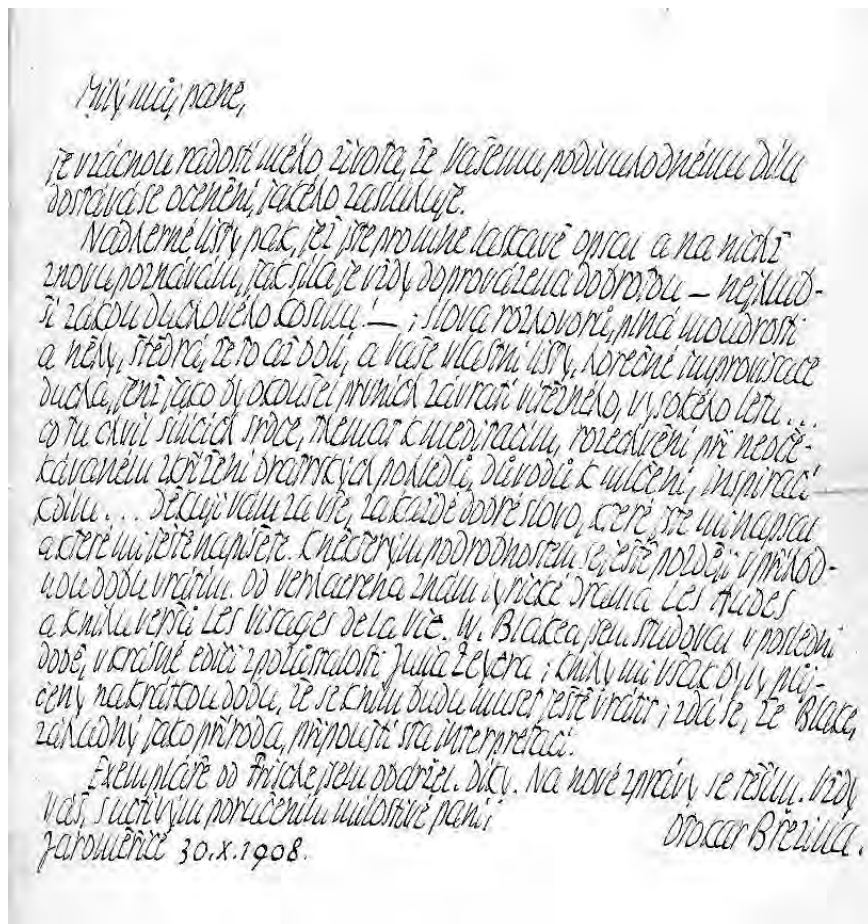 Milý můj pane,
je vzácnou radostí mého života, že Vašemu podivuhodnému dílu
dostává se ocenění, jakého zasluhuje.
Nádherné listy pak, jež jste pro mne laskavě opsal a na nichž
znovu poznávám, jak síla je vždy doprovázena dobrotou — nejhlub-
ší zákon duchového kosmu! — ; slova rozhovorů, plná moudrosti
a něhy, štědrá, že to až bolí, a Vaše vlastní listy, horečné improvisace
ducha, jenž jako by okoušel prvních závratí vítězného, vysokého letu...
co tu chvil sílících srdce, themat k meditacím, rozechvění při neoče-
kávaném zkřížení bratrských pohledů, důvodů k mlčení, inspirací
k dílu... Děkuji Vám za vše, za každé dobré slovo, které jste mi napsal
a které mi ještě napíšete. K některým podrobnostem se ještě později v příhod-
nou dobu vrátím. Od Verhaerena znám lyrické drama Les Aubes
a knihu veršů Les Visages de la Vie. W. Blakea jsem studoval v poslední
době, v krásné edici z pozůstalosti Julia Zeyera; knihy mi však byly půj-
čeny na krátkou dobu, že se k nim budu muset ještě vrátit; zdá se, že Blake,
záhadný jako příroda, připouští sta interpretací.
Exempláře od Frische jsem obdržel. Díky. Na nové zprávy se těším. Vždy
Váš, s uctivým poručením milostivé paní;
Otokar Březina.
Jaroměřice 30.X.1908.